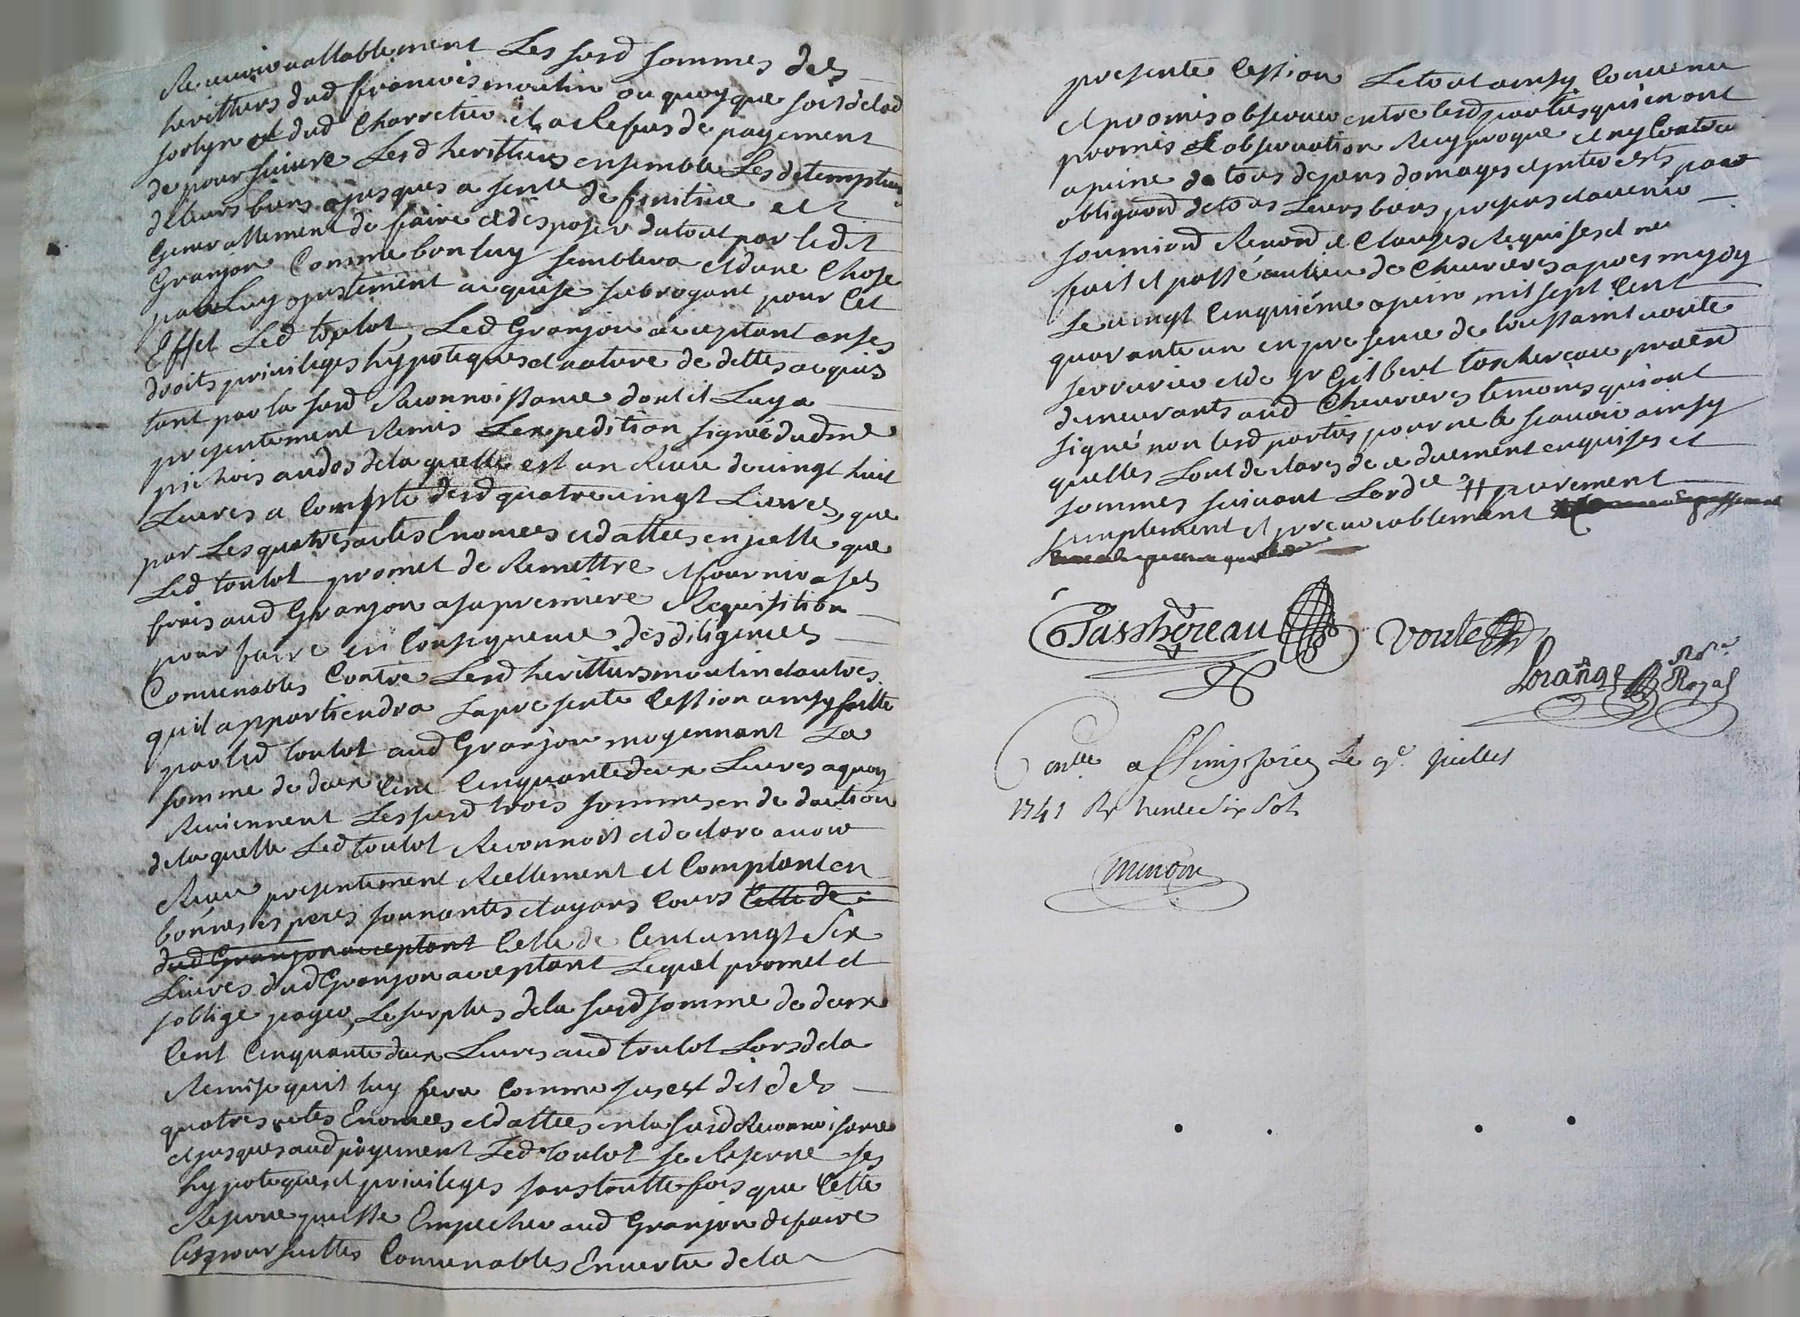 Recevoir vallablement Les susd sommes des
heritiers dud francois moulin ou quoy que soit de lad
joslyn et dud Charretier et a Refus de payement
de poursuivre Lesd heritiers ensemble Les detempteurs
de leurs biens jusques a sente definitive et
Generallement de faire et disposer du tout par ledit
Granjon Comme bon luy semblera et d'une Chose
par Luy justement acquise subrogant pour Cet
Effet Led toulot, Led Granjon acceptant en ses
droits privileges hypoteques et nature de dettes acquis
tant par la susd Reconnoissance dont il Luy a
presentement Remis L'expedition signée dud me
au dos de la quelle est un Receu de vingt huit
Livres a Compte desd quatre vingt Livres, que
par Les quatres actes Enoncees et dattees en jcelle que
Led toulot promet de Remettre et fournir a ses
frais aud Granjon a sa premiere Requisition
pour faire en Consequence des diligences
Convenables Contre Lesd heritiers moulin et autres
qu'il appartiendra La presente Cession ainsy faitte
par led toulot aud Granjon moyennant La
somme de deux Cent Cinquante deux Livres a quoy
Reviennent Les susd trois sommes en deduction
de la quelle Led toulot Reconnoist et declare avoir
Receu presentement Reellement et Comptant en
bonnes especes sonnantes et ayans Cours Celle de
dud Granjon acceptant Celle de Cent vingt Six
Livres dud Granjon acceptant Lequel promet et
s'oblige payer Le surplus de la susd somme de deux
Cent Cinquante deux Livres aud toulot Lors de la
Remise qu'il luy fera Comme sus est dit des
quatres actes Enoncees et dattees en la susd Reconnoissance
et jusques aud payement Led toulot se Reserve ses
hypoteques et privileges sans touttefois que Cette
Reserve puisse Empecher aud Granjon de faire
Ces poursuittes Convenables En vertu de la
presente Cession Le tout ainsy Convenu
et promis observer entre lesd parties qui en ont
promis L'observation Reciproque et ny Contrev
a peine de tous depens domages et jnterests par
obligaon de tous Leurs biens presens et avenir
soumiond Renond et Clauzes Requises et ne
fait et passé au lieu de Chevrieres apres mydy
Le vingt Cinquième avril mil sept Cent
quarante un en presence de toussaint voute
serrurier et de Sr Gilbert tashereau praend
demeurants aud Chevrieres temoins qui ont
signé non lesd parties pour ne le scavoir ainsy
quelles L'ont declaré de ce duement enquises et
sommes suivant L'ordce # purement
simplement et jrrevocablement
GTasshereau
voute
Lorange Nore Royal
Conlle a St simphorien Le 9e juillet
1741 Rx trente Six Sols